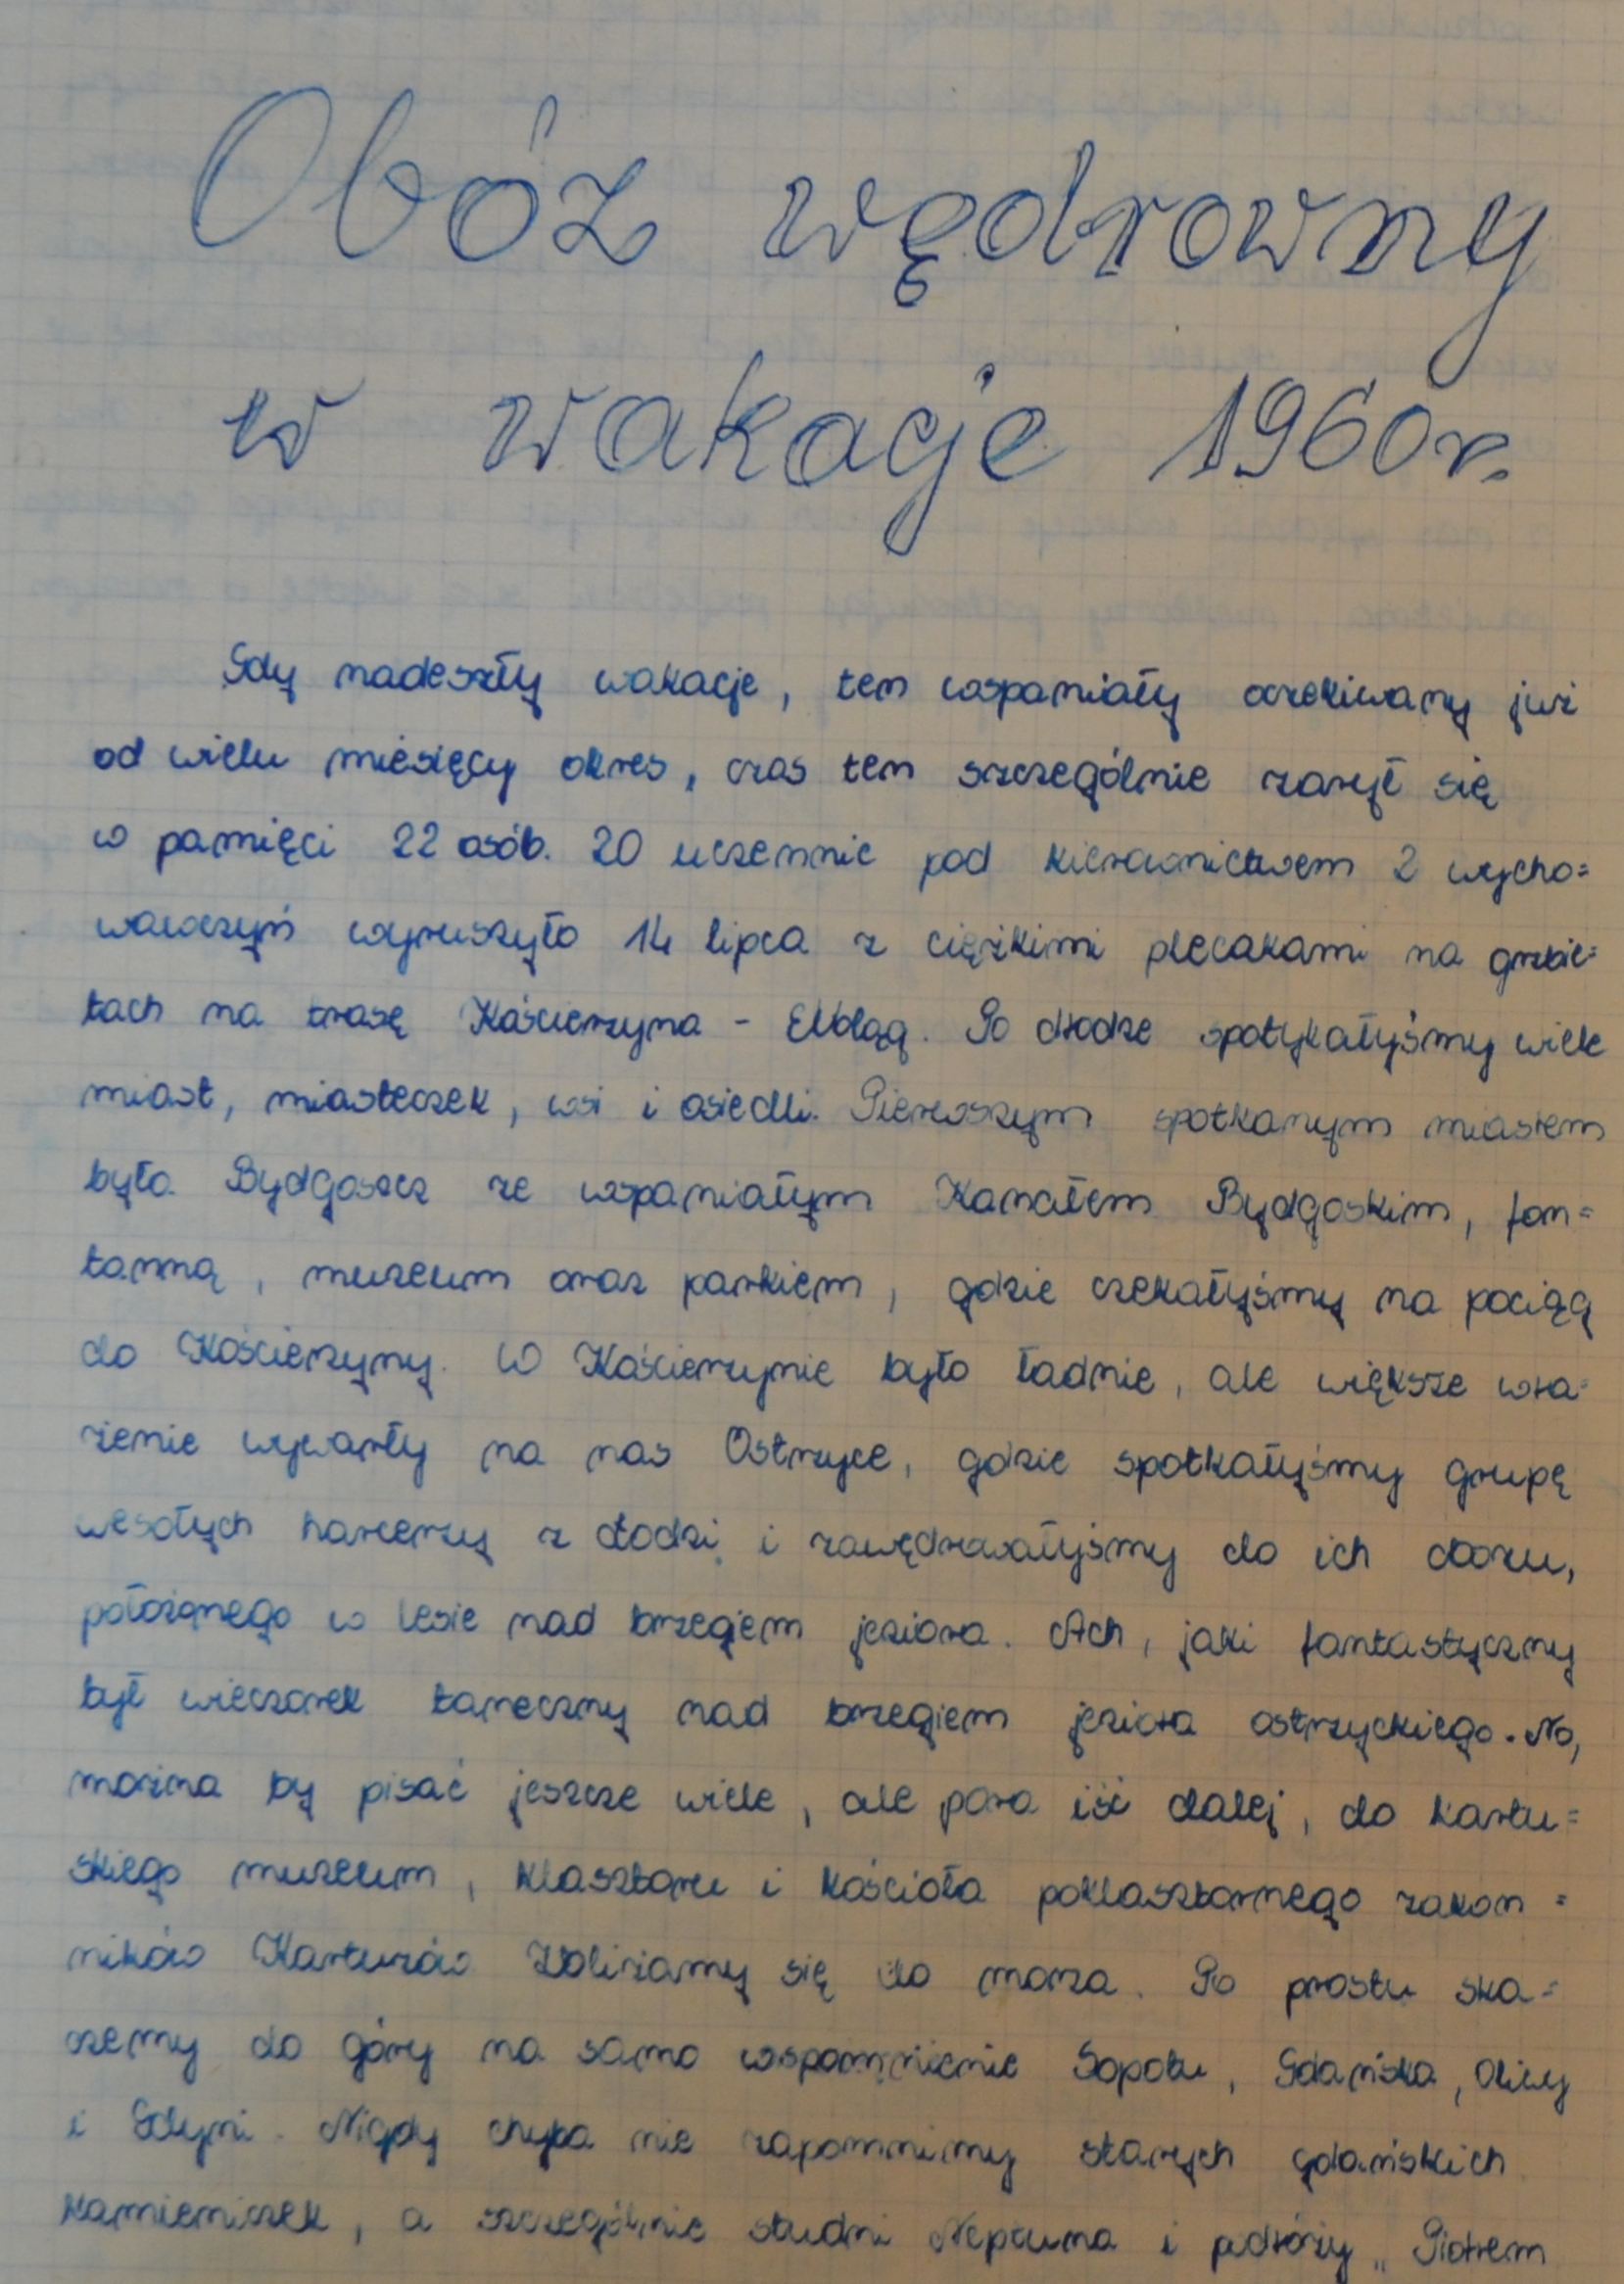 Obóz wędrowny
w wakacje 1960 r.
Gdy nadeszły wakacje, ten wspaniały oczekiwany już
od wielu miesięcy okres, czas ten szczególnie zarył się
w pamięci 22 osób. 20 uczennic pod kierownictwem 2 wycho=
wawczyń wyruszyło 14 lipca z ciężkimi plecakami na grzbie=
tach na trasę Kościerzyna - Elbląg. Po drodze spotykałyśmy wiele
miast, miasteczek, wsi i osiedli. Pierwszym spotkanym miastem
była Bydgoszcz ze wspaniałym Kanałem Bydgoskim, fon=
tanną, muzeum oraz parkiem, gdzie czekałyśmy na pociąg
do Kościerzyny. W Kościerzynie było ładnie, ale większe wra=
żenie wywarły na nas Ostrzyce, gdzie spotkałyśmy grupę
wesołych harcerzy z Łodzi i zawędrowałyśmy do ich obozu,
położonego w lesie nad brzegiem jeziora. Ach, jaki fantastyczny
był wieczorek taneczny nad brzegiem jeziora ostrzyckiego. No,
można by pisać jeszcze wiele, ale pora iść dalej, do kartu=
skiego muzeum, klasztoru i kościoła poklasztornego zakon=
ników Kartuzów. Zbliżamy się do morza. Po prostu ska=
czemy do góry na samo wspomnienie Sopotu, Gdańska, Oliwy
i Gdyni. Nigdy chyba nie zapomnimy starych gdańskich
kamieniczek, a szczególnie studni Neptuna i podróży „Piotrem